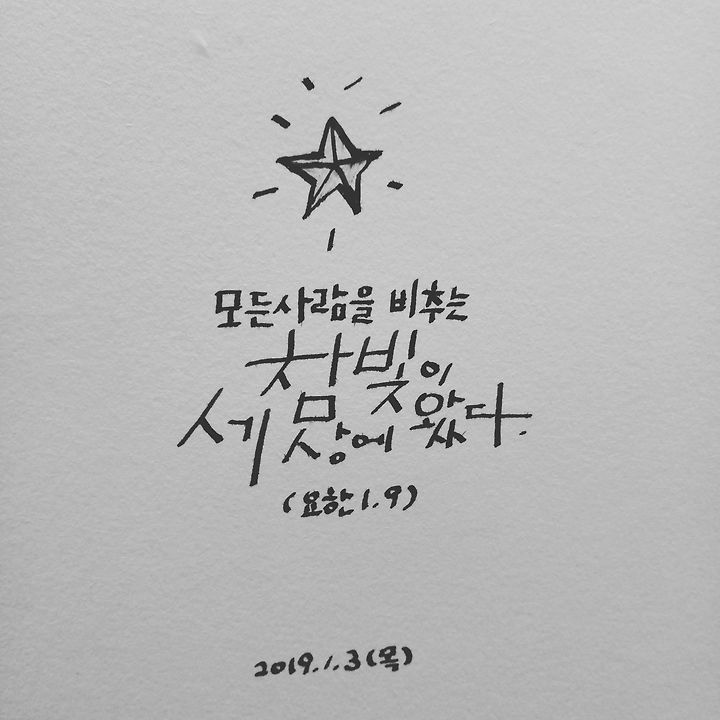 모든사람을 비추는
참빛이
세상에 왔다.
(요한 1.9)
2019.1.3(목)